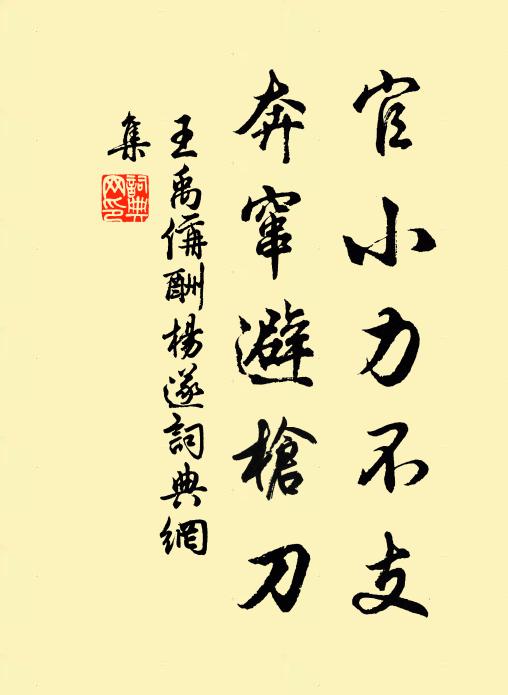 官小力不支
奔窜避槍刀
王禹偁酬楊遂詞典網
集
詞典
网印